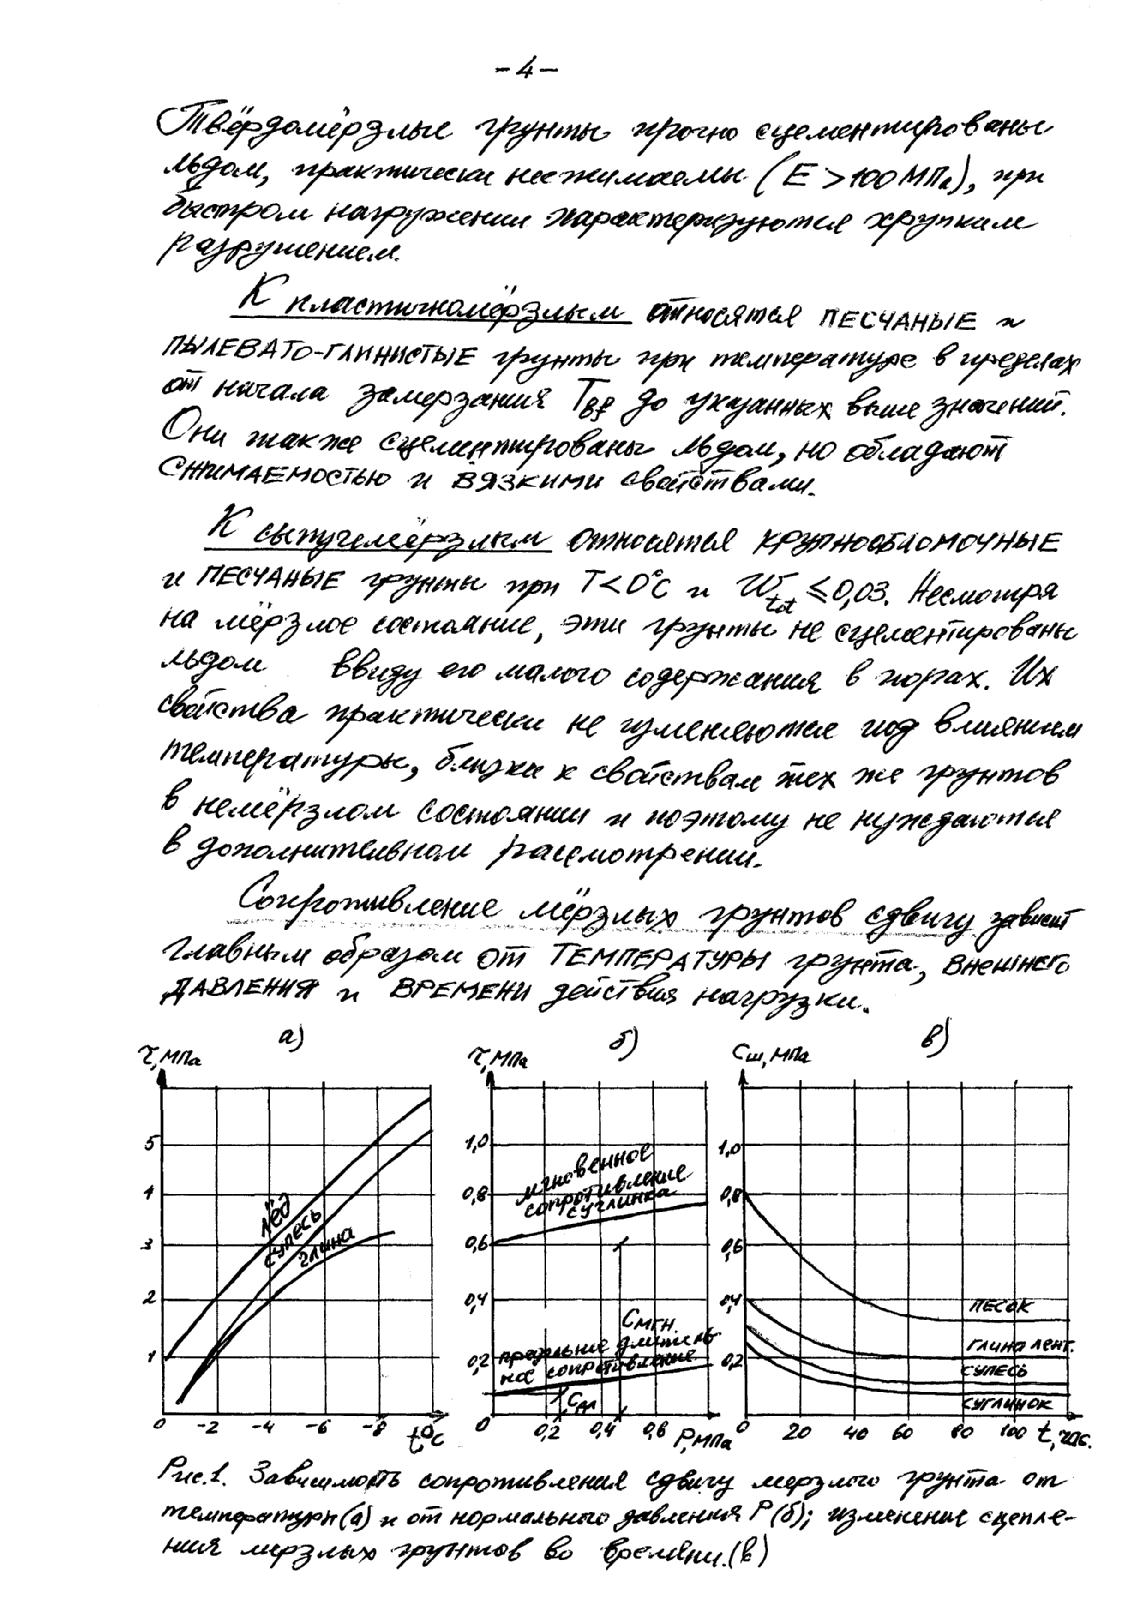 -4-
Твёрдомёрзлые грунты прочно сцементированы
льдом, практически несжимаемы (E >100 МПа), при
быстром нагружении характеризуются хрупким
разрушением.
К пластичномёрзлым относятся ПЕСЧАНЫЕ и
ПЫЛЕВАТО-ГЛИНИСТЫЕ грунты при температуре в пределах
от начала замерзания Tbf до указанных выше значений.
Они также сцементированы льдом, но обладают
СЖИМАЕМОСТЬЮ и ВЯЗКИМИ свойствами.
К сыпучемёрзлым относятся КРУПНООБЛОМОЧНЫЕ
и ПЕСЧАНЫЕ грунты при T<0°C и Wtot ≤0,03. Несмотря
на мёрзлое состояние, эти грунты не сцементированы
льдом ввиду его малого содержания в порах. Их
свойства практически не изменяются под влиянием
температуры, близки к свойствам тех же грунтов
в немёрзлом состоянии и поэтому не нуждаются
в дополнительном рассмотрении.
Сопротивление мёрзлых грунтов сдвигу зависит
главным образом от ТЕМПЕРАТУРЫ грунта, ВНЕШНЕГО
ДАВЛЕНИЯ и ВРЕМЕНИ действия нагрузки.
а) б) в)
τ,МПа τ,МПа Cш,МПа
5 1,0 1,0
4 0,8 0,8
3 0,6 0,6
2 0,4 0,4
1 0,2 0,2
лёд
супесь
глина
мгновенное
сопротивление
суглинка
Cмгн.
предельные длитель
ное сопротивление
Cдл
ПЕСОК
ГЛИНА ЛЕНТ.
СУПЕСЬ
СУГЛИНОК
0 -2 -4 -6 -8 -10 0 0,2 0,4 0,6 0,8 0 20 40 60 80 100 t,час.
t,°C P,МПа
Рис.1. Зависимость сопротивления сдвигу мерзлого грунта от
температуры(а) и от нормального давления P (б); изменение сцепле-
ния мерзлых грунтов во времени.(в)